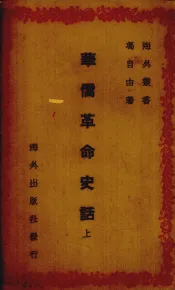 海外叢書
馮自由著
華僑革命史話 上
海外出版社發行